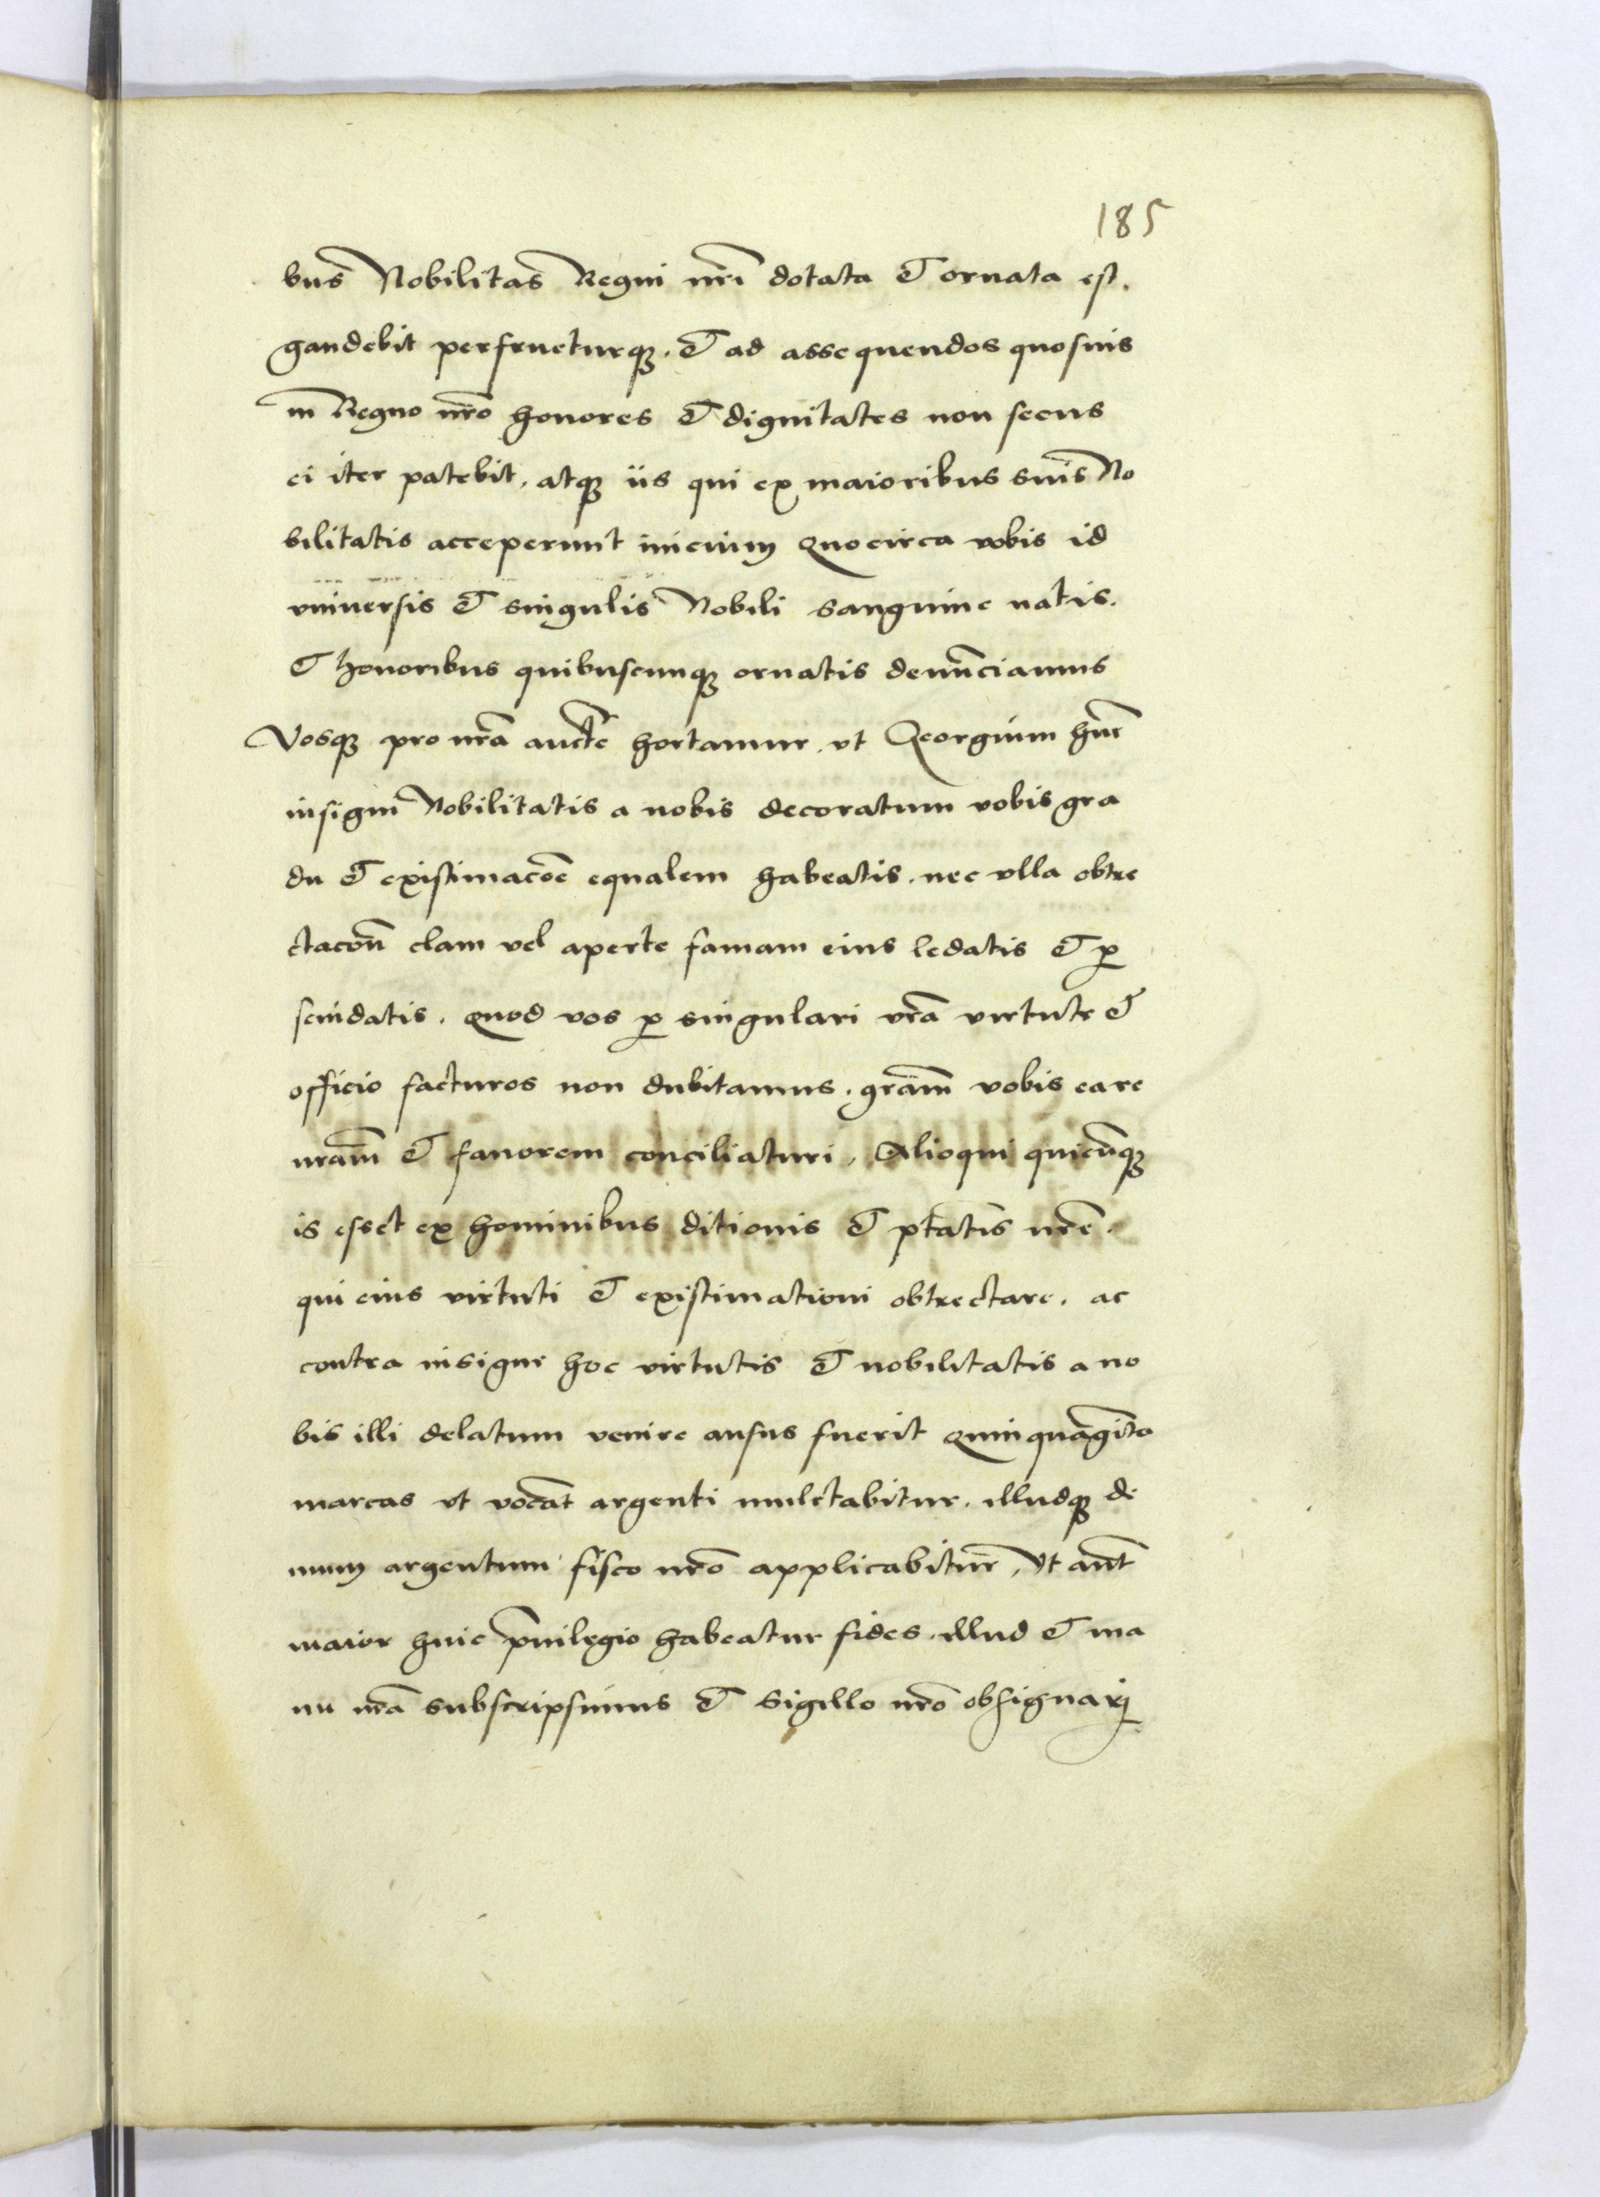 185
bus Nobilitas Regni nr̄i dotata & ornata est.
gaudebit perfrueturqꝫ. & ad assequendos quosuis
in Regno nr̄o honores & dignitates non secus
ei iter patebit. atqꝫ iis qui ex maioribus suis No
bilitatis acceperunt inicium Quocirca vobis id
vniuersis & singulis Nobili sanguine natis.
& honoribus quibuscunqꝫ ornatis denūciamus
Vosqꝫ pro nr̄a auctē hortamur. vt Georgium hūc
insigni Nobilitatis a nobis decoratum vobis gra
du & existimacōe equalem habeatis. nec vlla obtre
ctacōn clam vel aperte famam eius ledatis & ꝓ
scindatis. Quod vos ꝓ singulari vr̄a virtute &
officio facturos non dubitamus. grām vobis ea re
nrām & fauorem conciliaturi. Alioqui quicūqꝫ
is esset ex hominibus ditionis & ptātis nr̄e.
qui eius virtuti & existimationi obtrectare. ac
contra insigne hoc virtutis & nobilitatis a no
bis illi delatum venire ausus fuerit Quinquagīta
marcas vt vocāt argenti mulctabitur. illudqꝫ de
mum argentum fisco nr̄o applicabitur. Vt aūt
maior huic pūilegio habeatur fides. illud & ma
nu nr̄a subscripsimus & Sigillo nr̄o obsignarj